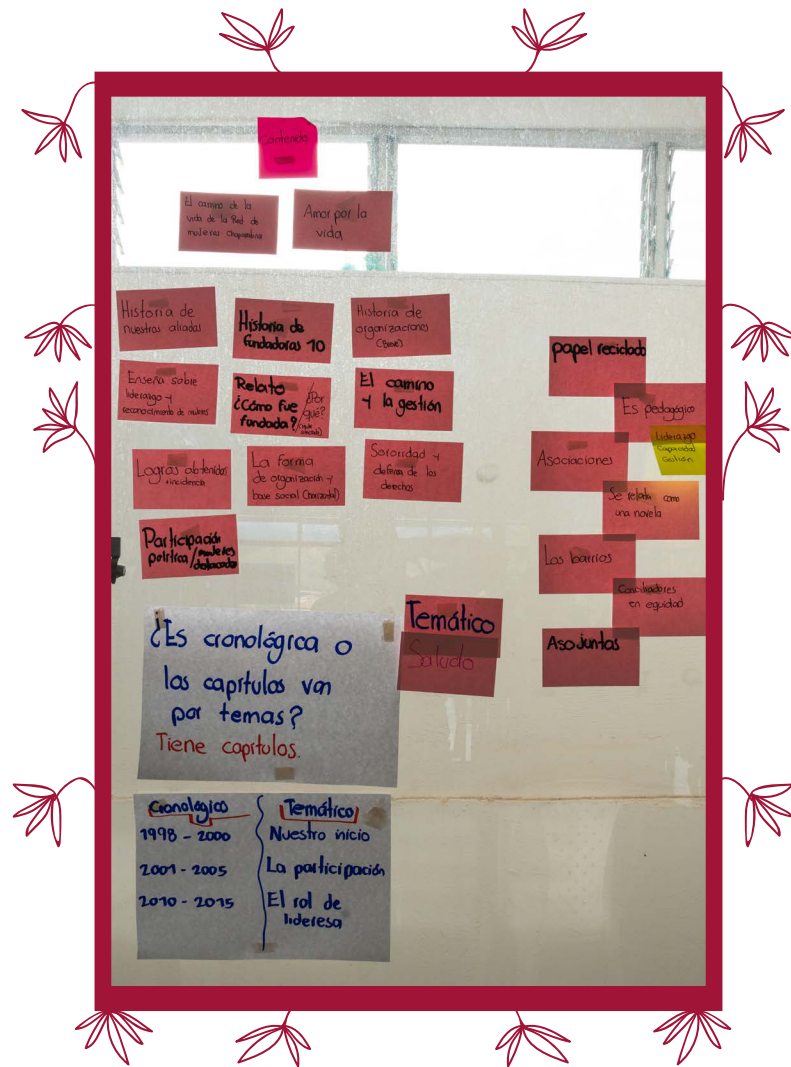 Contenido
El camino de la
vida de la Red de
mujeres Chaparralunas
Amor por la
vida
Historia de
nuestras aliadas
Historia de
fundadoras 10
Historia de
organizaciones
(Breve)
Enseña sobre
liderazgo y
reconocimiento de mujeres
Relato
¿Cómo fue
fundada?
¿Por
qué?
El camino
y la gestión
Logros obtenidos
incidencia
La forma
de organización y
base social (horizontal)
Sororidad y
defensa de los
derechos
Participación
política/mujeres
destacadas
papel reciclado
Es pedagógico
Liderazgo
Capacidad
Gestión
Asociaciones
Se relata como
una novela
Los barrios
Conciliadores
en equidad
Asojuntas
Temático
Saludo
¿Es cronológica o
los capítulos van
por temas?
Tiene capítulos.
Cronológico
Temático
1998 - 2000
Nuestro inicio
2001 - 2005
La participación
2010 - 2015
El rol de
lideresa